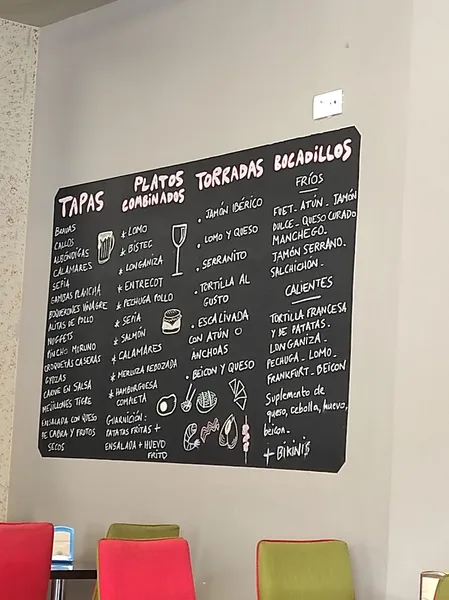 TAPAS
BRAVAS
CALLOS
ALBÓNDIGAS
CALAMARES
SEPIA
GAMBAS PLANCHA
BOQUERONES VINAGRE
ALITAS DE POLLO
NUGGETS
PINCHO MORUNO
CROQUETAS CASERAS
GYOZAS
CARNE EN SALSA
MEJILLONES TIGRE
ENSALADA CON QUESO
DE CABRA Y FRUTOS
SECOS
PLATOS
COMBINADOS
* LOMO
* BISTEC
* LONGANIZA
* ENTRECOT
* PECHUGA POLLO
* SEPIA
* SALMÓN
* CALAMARES
* MERLUZA REBOZADA
* HAMBURGUESA
COMPLETA
GUARNICIÓN:
PATATAS FRITAS +
ENSALADA + HUEVO
FRITO
TORRADAS
. JAMÓN IBÉRICO
. LOMO Y QUESO
. SERRANITO
. TORTILLA AL
GUSTO
. ESCALIVADA
CON ATÚN O
ANCHOAS
. BEICON Y QUESO
BOCADILLOS
FRÍOS
FUET. ATÚN. JAMÓN
DULCE. QUESO CURADO
MANCHEGO.
JAMÓN SERRANO.
SALCHICHÓN.
CALIENTES
TORTILLA FRANCESA
Y DE PATATAS.
LONGANIZA.
PECHUGA. LOMO.
FRANKFURT. BEICON
Suplemento de
queso, cebolla, huevo,
beicon.
+ BIKINIS